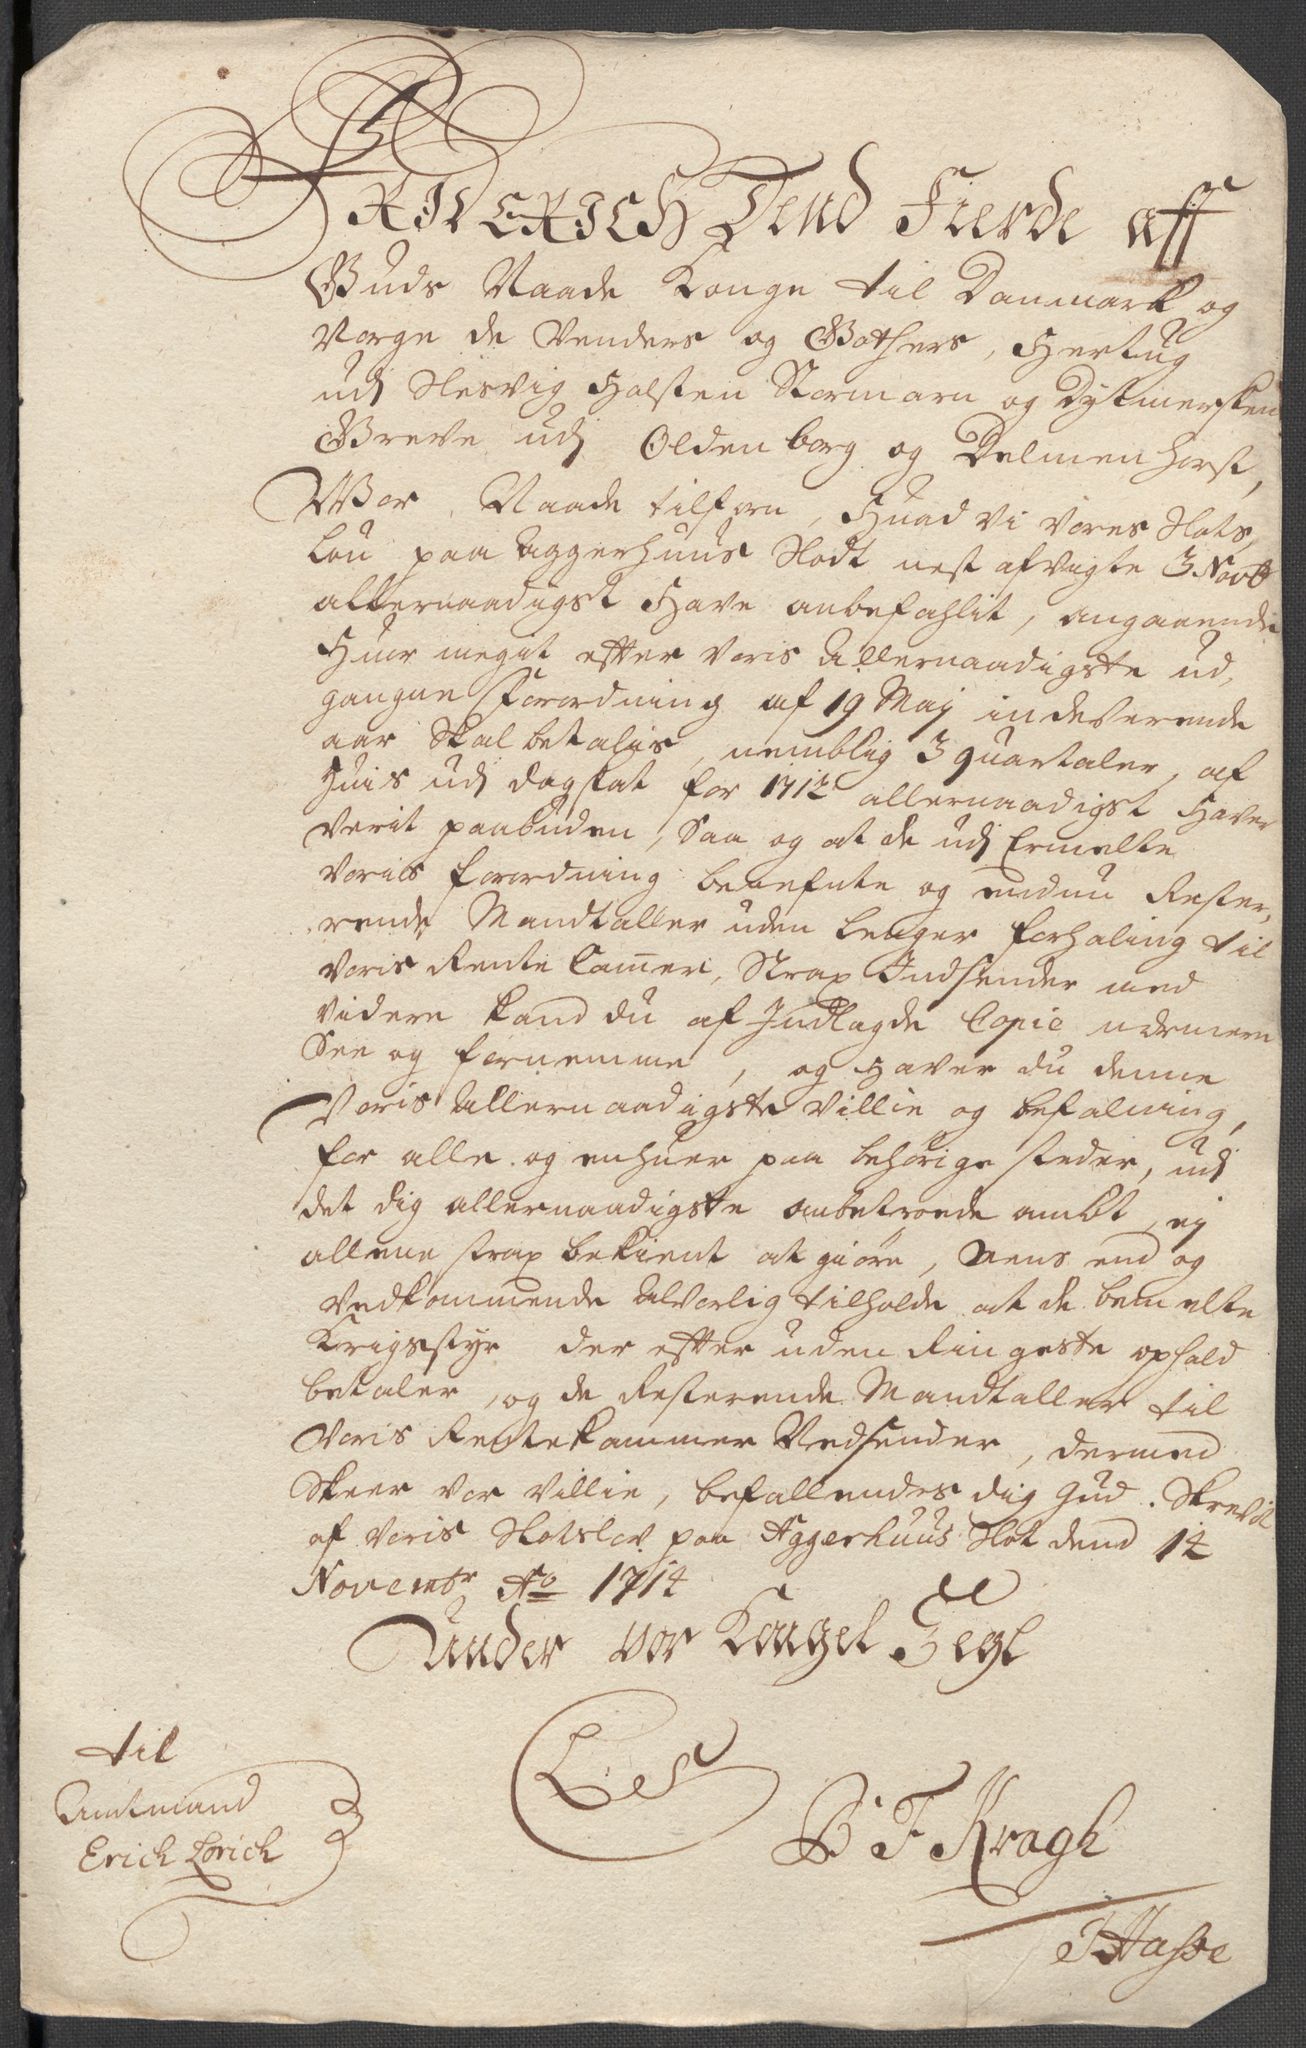 FRIDERICH Dend Fierde aff
Guds Naade Konge til Danmark og
Norge de Venders og Gothers, Hertug
udj Slesvig Holsten Stormarn og Dytmersken
Greve udj Oldenborg og Delmenhorst,
Vor Naade tilforn, Huad vi vores Slots,
Lou paa Aggerhuus Slodt nest afvigte 3 Novb
allernaadigst Have anbefahlit, angaaende
Huor megit efter voris Allernaadigste ud,
gangne Forordning af 19 Maj indeverende
aar Skal betalis, nemblig 3 quartaler, af
huis udj dagskat for 1712 allernaadigst Haver
verit paabuden, Saa og at de udj Ermelte
voris forordning benefnte og endnu Rester,
rende Mandtaller uden lenger forhaling til
voris Rente Cam̄er, Strax Indsender med
videre kand du af Indlagde Copie nermere
See og fornemme, og Haver du denne
Voris Allernaadigste villie og befalning,
for alle og enhuer paa behörige steder, udj
det dig allernaadigste anbetroede ambt, ej
allene strax bekient at giöre, Mens end og
vedkommende Alvorlig tilholde at de bemelte
Krigsstyr der efter uden Ringeste ophold
betaler, og de Resterende Mandtaller til
Voris Rentekammer Nedsender, dermed
Skeer vor villie, befallendes dig Gud. Skrevit
af voris Slotslov paa Aggerhuus Slot dend 14
Novembr Ao 1714
Under vor Kongel Zegl
LS
til
Amtmand
Erich Lorich
B F Kragh
THasse